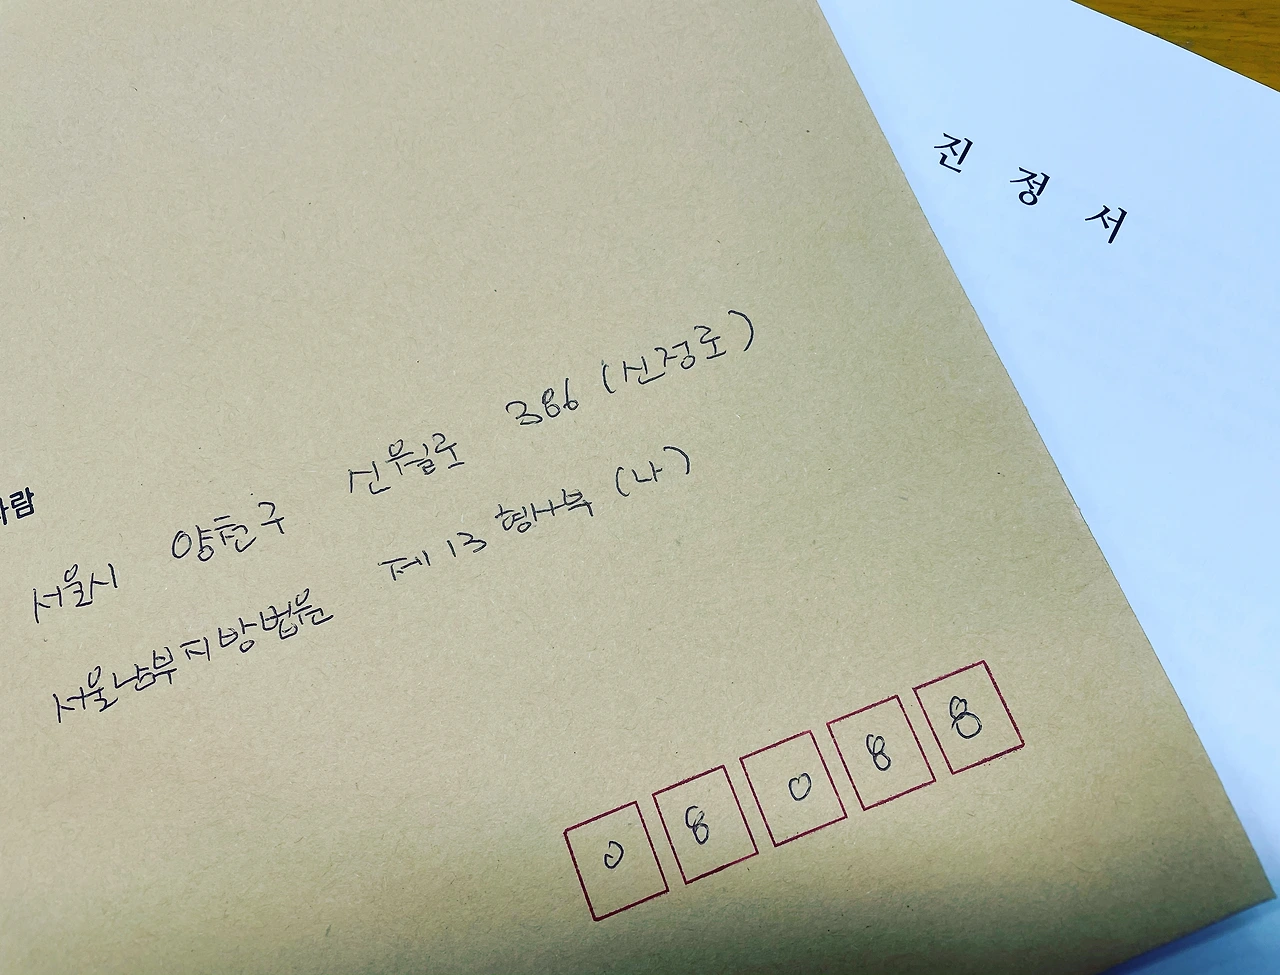 진 정 서
사람
서울시 양천구 신월로 386 (신정로)
서울남부지방법원 제 13 형사부 (나)
0 8 0 8 8